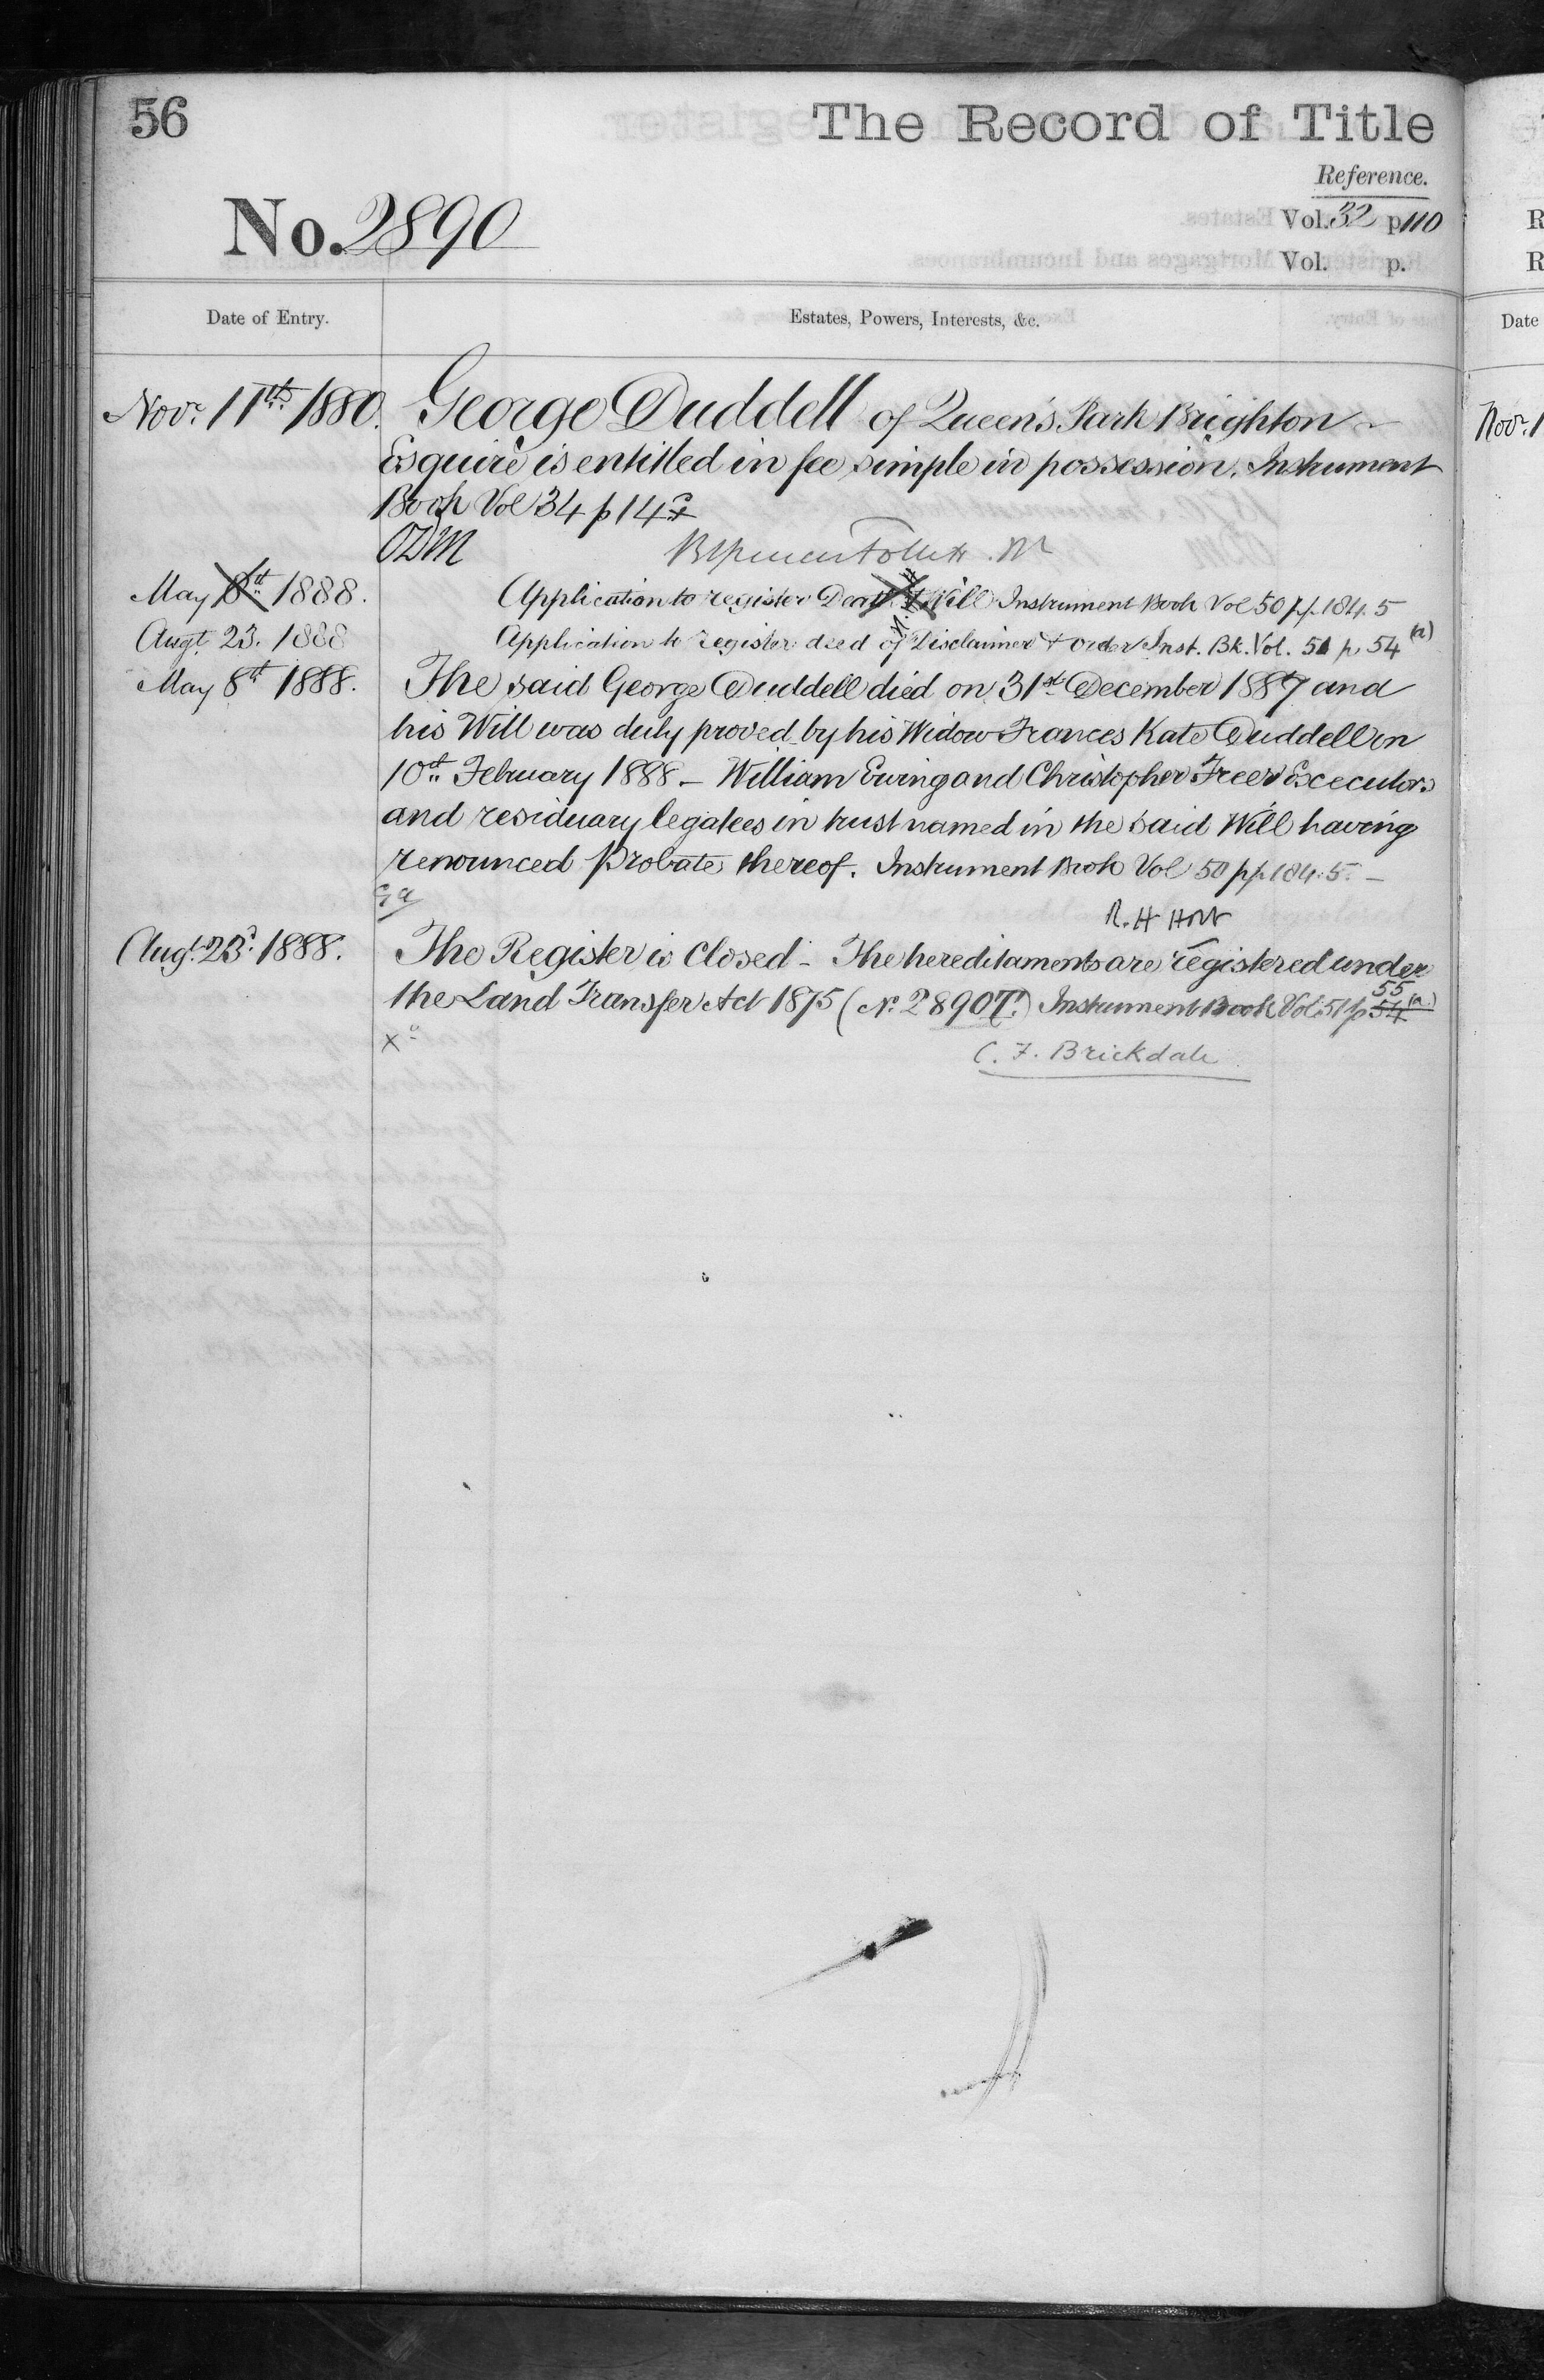 56
The Record of Title
Reference.
No. 2890
Vol. 32 p 110
Vol. p.
Date of Entry.
Estates, Powers, Interests, &c.
Date
Novr. 11th 1880. George Duddell of Queen's Park Brighton
Esquire is entitled in fee simple in possession. Instrument
Book Vol 34 p 14
ODM
May 8th 1888. Application to register Death & Will Instrument Book Vol 50 pp. 184.5
Augt. 23. 1888 Application to register deed of Disclaimer & Order Inst. Bk. Vol. 51 p. 54 (a)
May 8th 1888. The said George Duddell died on 31st December 1887 and
his Will was duly proved by his Widow Frances Kate Duddell on
10th February 1888 – William Ewing and Christopher Freer Executors
and residuary legatees in trust named in the said Will having
renounced Probate thereof. Instrument Book Vol 50 pp 184.5. –
R. H
Augt. 23d. 1888. The Register is Closed – The hereditaments are registered under
55
the Land Transfer Act 1875 (No. 2890T.) Instrument Book Vol. 51 p 54 (a.)
C. F. Brickdale
R
R
Novr. 1